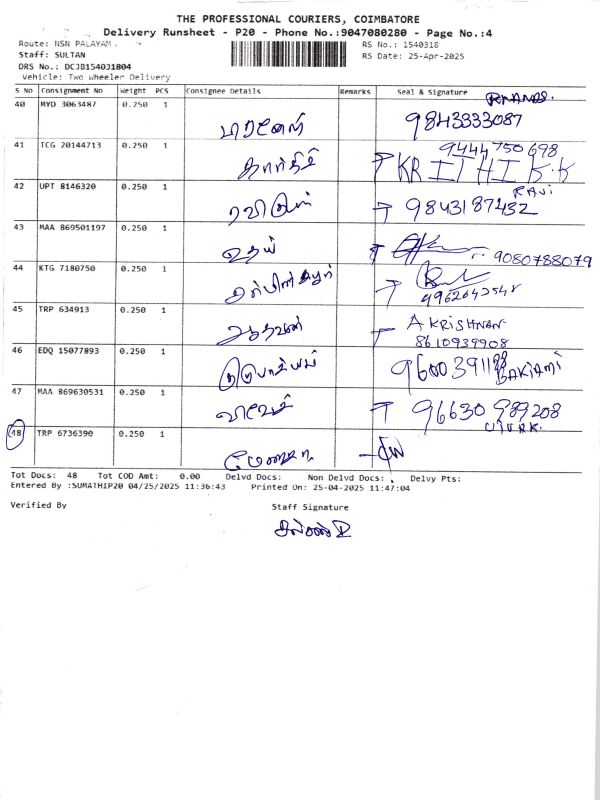 THE PROFESSIONAL COURIERS, COIMBATORE
Delivery Runsheet - P20 - Phone No.:9047080280 - Page No.:4
Route: NSN PALAYAM. RS No.: 1540318
Staff: SULTAN RS Date: 25-Apr-2025
DRS No.: DCJB154031804
Vehicle: Two Wheeler Delivery
S No Consignment No Weight PCS Consignee Details Remarks Seal & Signature
40 MYD 3063487 0.750 1 9843333087
41 TCG 20144713 0.250 1 கார்த்தி 9444750698
KRITHI K.K
42 UPT 8146320 0.250 1 RAVI
9843187432
43 MAA 869501197 0.250 1 உதய் 9080788079
44 KTG 7180750 0.250 1
9962642548
45 TRP 634913 0.250 1 A KRISHNAN
8610939908
46 EDQ 15077893 0.250 1 BAKIAMI
47 MAA 869630531 0.250 1 96630 989208
VIVEK.
48 TRP 6736390 0.250 1
Tot Docs: 48 Tot COD Amt: 0.00 Delvd Docs: Non Delvd Docs: Delvy Pts:
Entered By :SUMATHIP20 04/25/2025 11:36:43 Printed On: 25-04-2025 11:47:04
Verified By Staff Signature